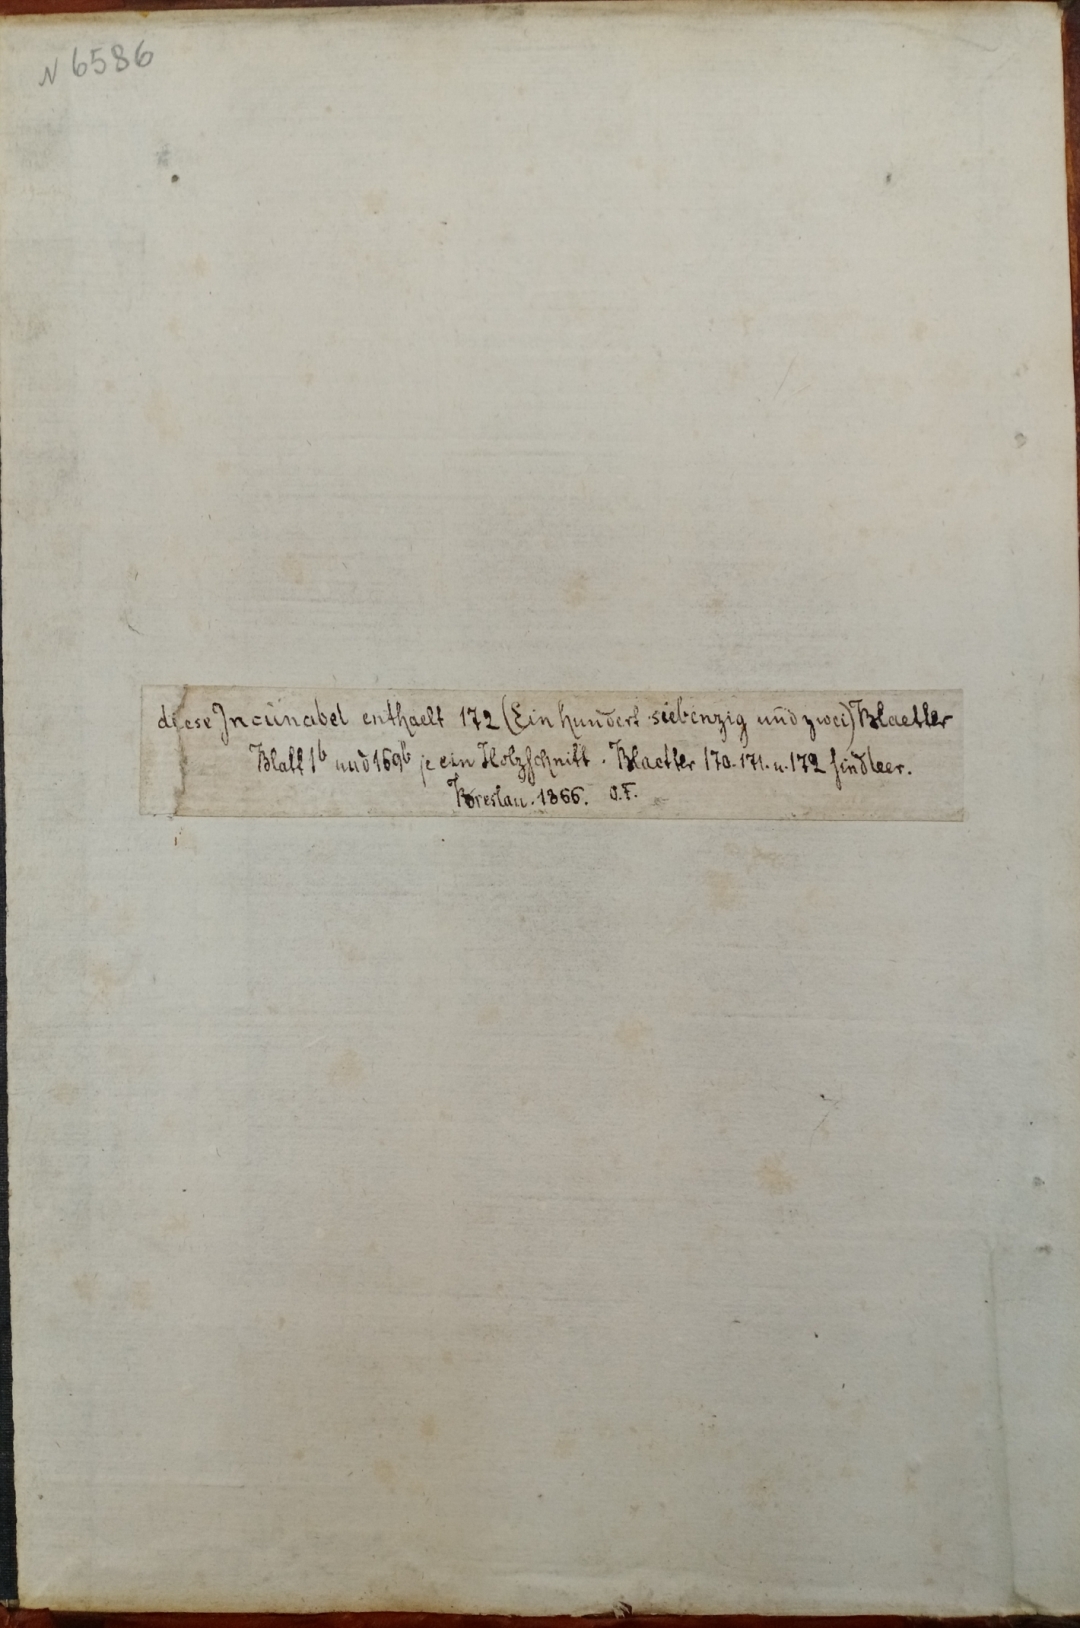 N 6586
diese Incunabel enthaelt 172 (Ein hundert siebenzig und zwei) Blaetter
Blatt 1b und 169b je ein Holzschnitt. Blaetter 170. 171. u. 172 sind leer.
Breslau. 1866. O.F.